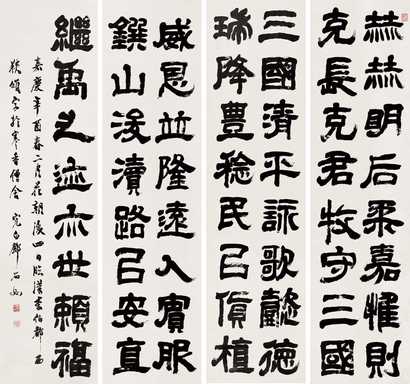 赫赫明后柔嘉惟則
克長克君牧守三國
三國清平詠歌懿德
瑞降豊稔民㠯貨植
威恩並隆遠人賓服
鐉山浚瀆路㠯安直
繼禹之迹亦世賴福
嘉慶辛酉春二月花朝後四日臨漢李伯都西
狹頌字於寒香僧舍 完白鄧石如